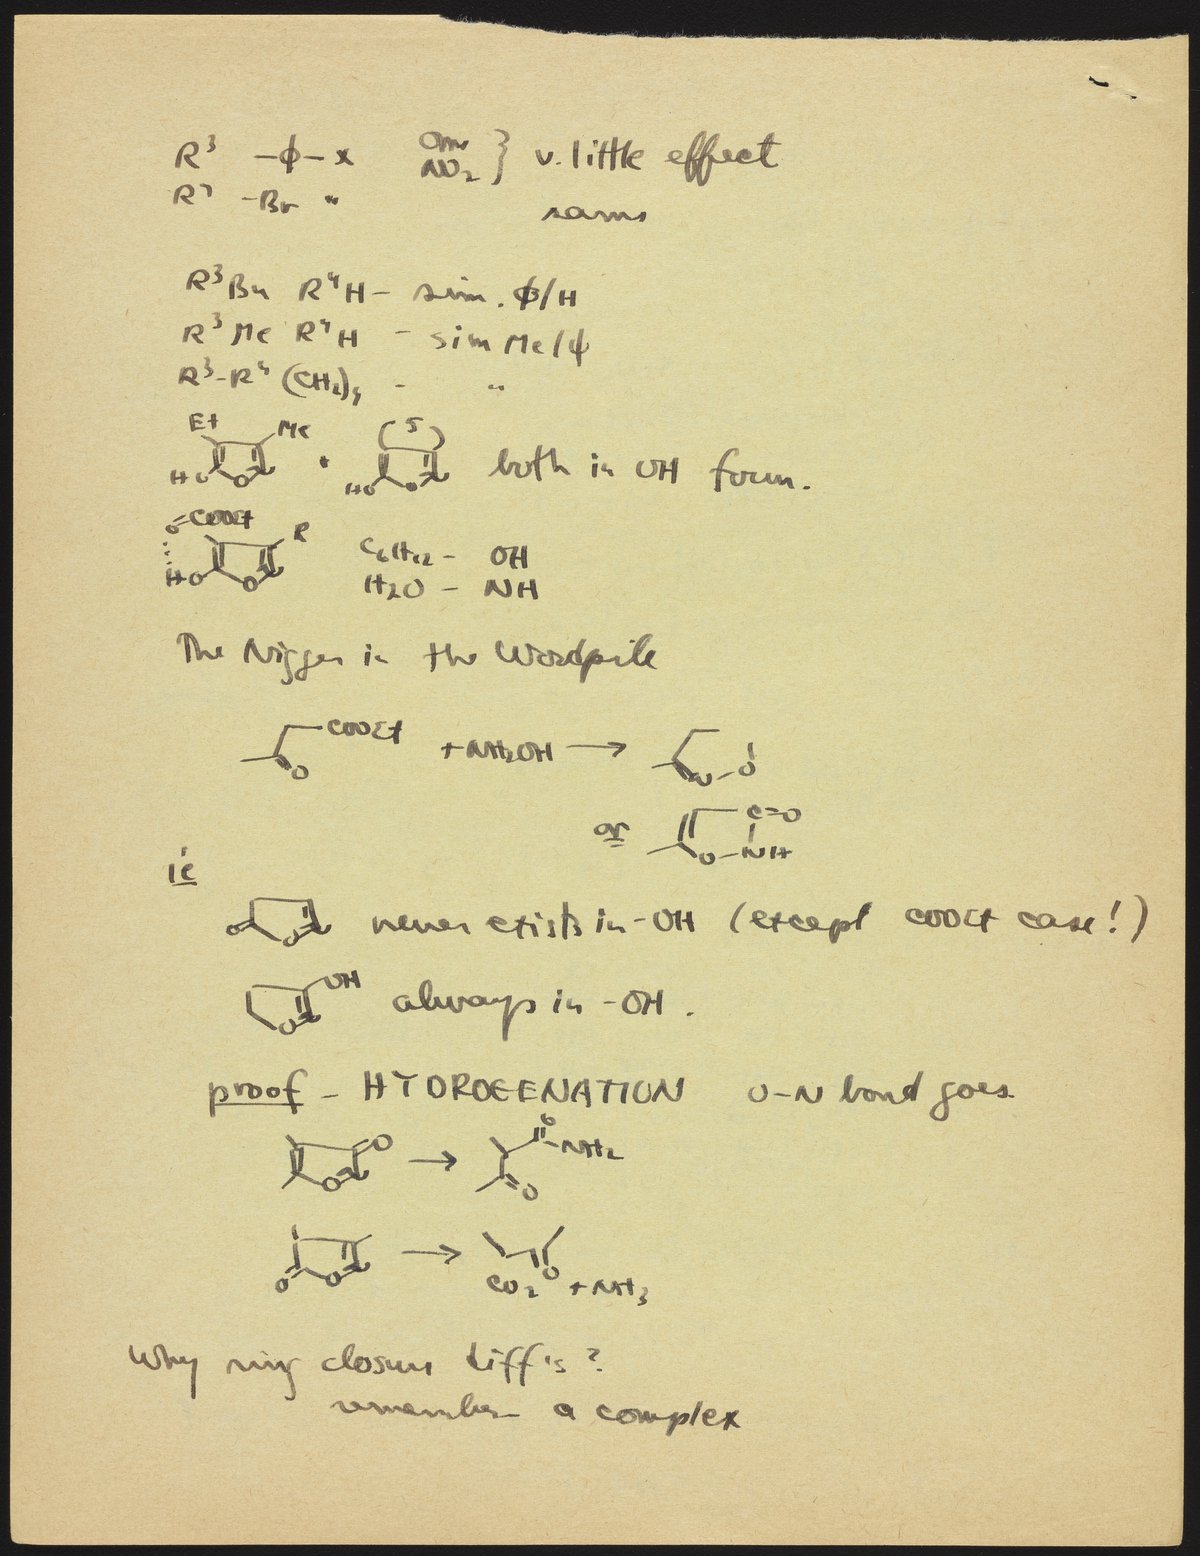 R³ –ϕ– x OMe } v. little effect
NO₂
R⁴ –Br " same
R³Bu R⁴H – sim. ϕ/H
R³Me R⁴H – sim Me/ϕ
R³-R⁴ (CH₂)₄ - "
Et Me (5)
HO O N + HO O N both in OH form.
O=COOEt R
HO O N C₆H₁₂ – OH
H₂O – NH
The Nigger in the Woodpile
COOEt
O + NH₂OH → N–O
or C=O
O–NH
ie
O O N never exists in -OH (except COOEt case!)
OH
O N always in -OH.
proof – HYDROGENATION O–N bond goes
O O N → O –NH₂
O
O O N → O
CO₂ + NH₃
Why ring closure diff's?
remember a complex